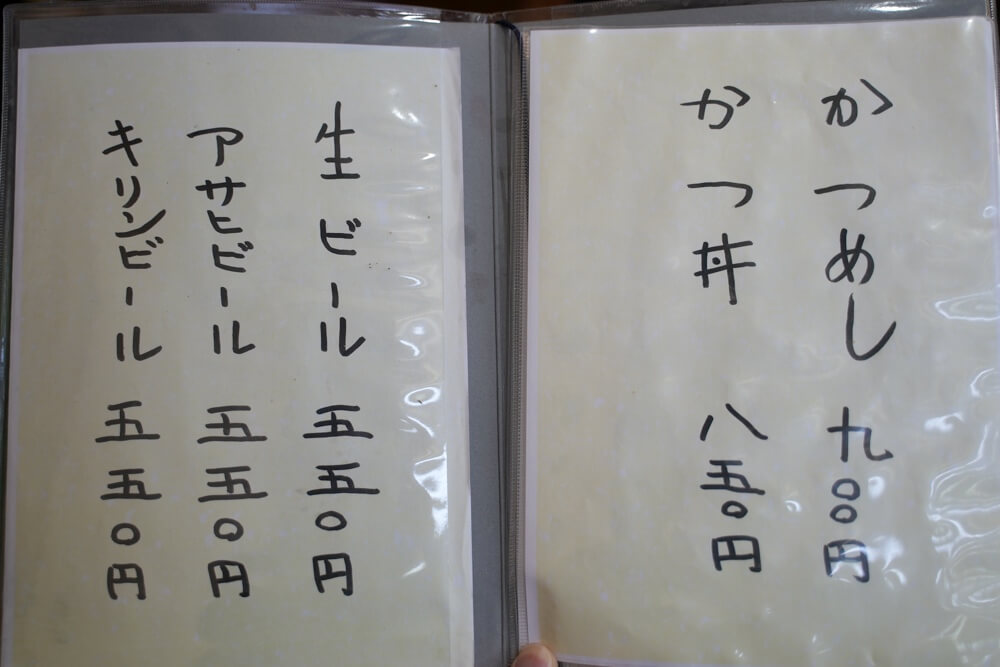 かつめし 九〇〇円
かつ丼 八五〇円
生ビール 五五〇円
アサヒビール 五五〇円
キリンビール 五五〇円